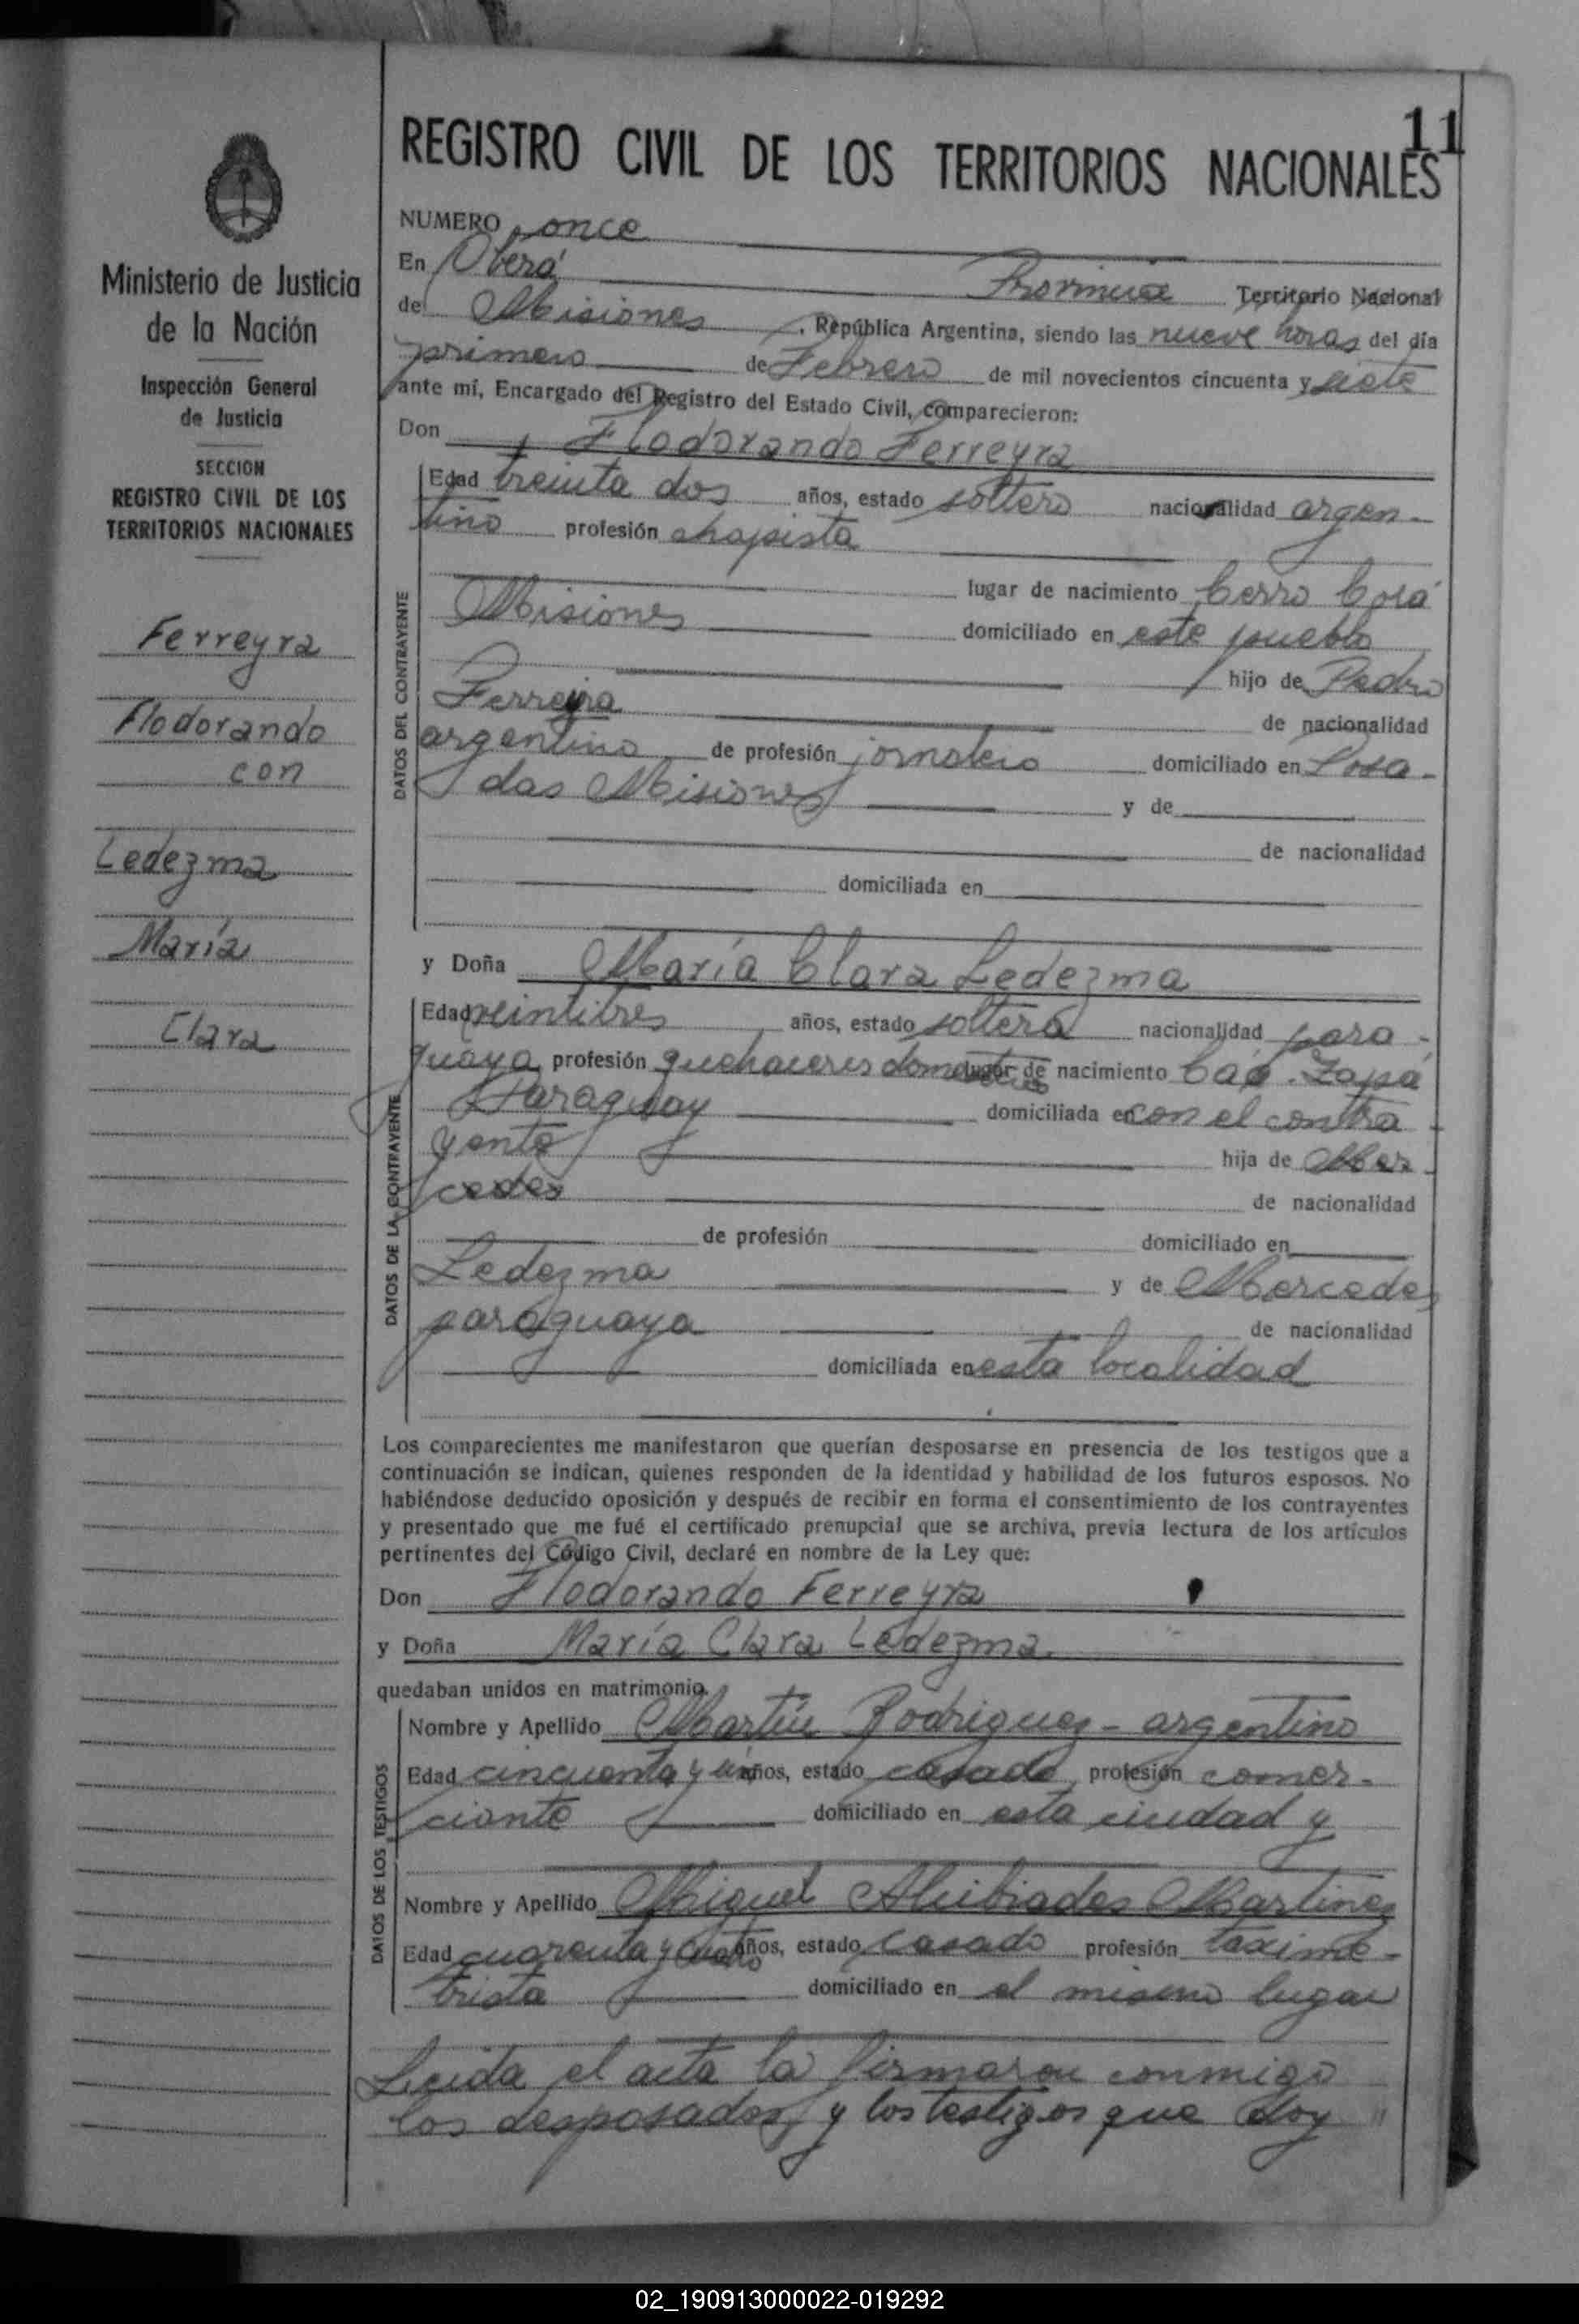 11
REGISTRO CIVIL DE LOS TERRITORIOS NACIONALES
NUMERO once
En Oberá Provincia Territorio Nacional
de Misiones, República Argentina, siendo las nueve horas del día
primero de Febrero de mil novecientos cincuenta y siete
ante mí, Encargado del Registro del Estado Civil, comparecieron:
Don Flodorando Ferreyra
Edad treinta dos años, estado soltero nacionalidad argen-
tino profesión chapista
lugar de nacimiento Cerro Corá
Misiones domiciliado en este pueblo
hijo de Pedro
Ferreira de nacionalidad
argentino de profesión jornalero domiciliado en Posa-
das Misiones y de
de nacionalidad
domiciliada en
DATOS DEL CONTRAYENTE
y Doña María Clara Ledezma
Edad veintitres años, estado soltera nacionalidad para-
guaya profesión quehaceres domesticos lugar de nacimiento Caá-Zapá
Paraguay domiciliada en con el contra-
yente hija de Mer-
cedes de nacionalidad
de profesión domiciliado en
Ledezma y de Mercedes
paraguaya de nacionalidad
domiciliada en esta localidad
DATOS DE LA CONTRAYENTE
Los comparecientes me manifestaron que querían desposarse en presencia de los testigos que a
continuación se indican, quienes responden de la identidad y habilidad de los futuros esposos. No
habiéndose deducido oposición y después de recibir en forma el consentimiento de los contrayentes
y presentado que me fué el certificado prenupcial que se archiva, previa lectura de los artículos
pertinentes del Código Civil, declaré en nombre de la Ley que:
Don Flodorando Ferreyra
y Doña María Clara Ledezma.
quedaban unidos en matrimonio.
Nombre y Apellido Martín Rodriguez - argentino
Edad cincuenta y un años, estado casado, profesión comer-
ciante domiciliado en esta ciudad y
Nombre y Apellido Miguel Alcibiades Martinez
Edad cuarenta y cuatro años, estado casado profesión taxime-
trista domiciliado en el mismo lugar
DATOS DE LOS TESTIGOS
Leida el acta la firmaron conmigo
los desposados y los testigos que doy "
Ministerio de Justicia
de la Nación
Inspección General
de Justicia
SECCION
REGISTRO CIVIL DE LOS
TERRITORIOS NACIONALES
Ferreyra
Flodorando
con
Ledezma
María
Clara
02_190913000022-019292